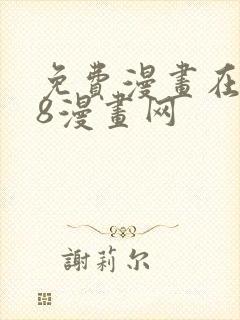 免費漫畫在
8漫畫网
謝莉尔